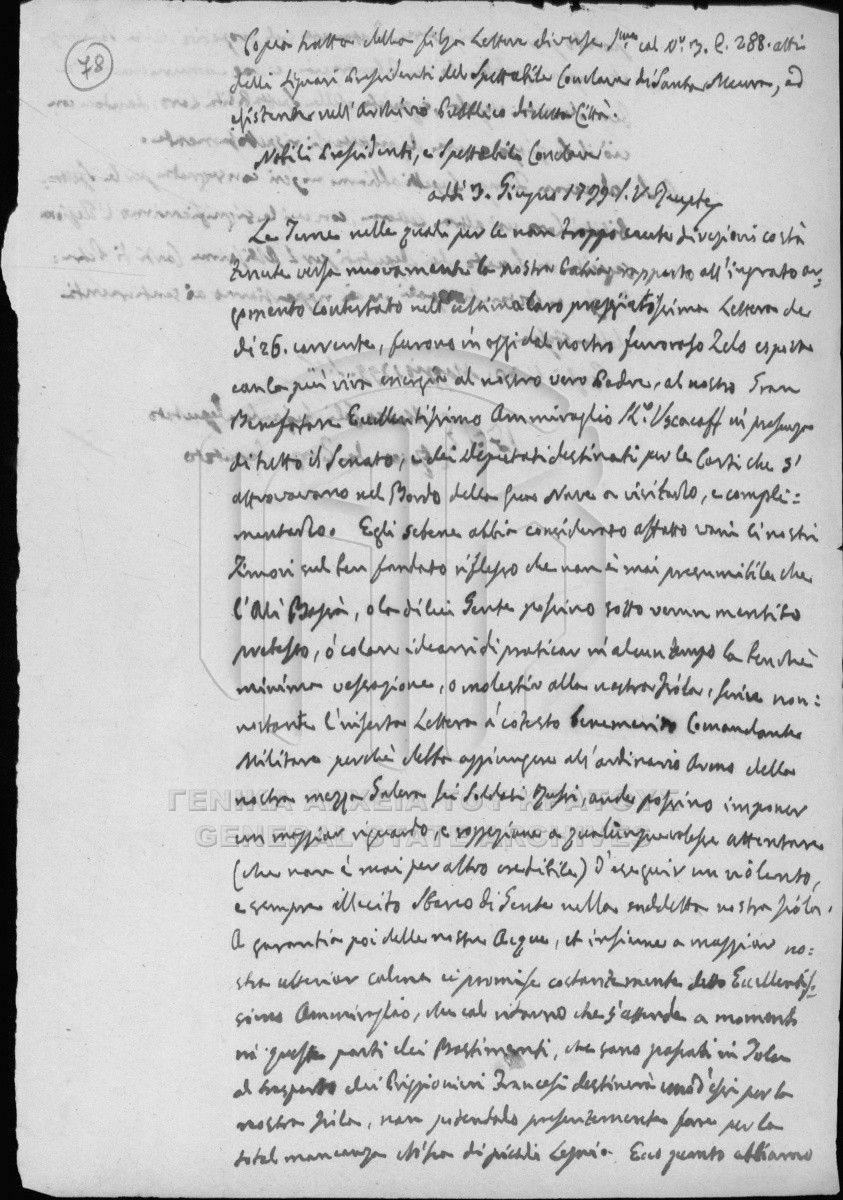 78
Copia tratta della filza Lettere diverse Sme. cal No. 3. C. 288. atti
delli Signori Presidenti del Spettabile Conclave di Santa Maura, ad
esistente nell'Archivio Pubblico di detta Città.
Nobili Presidenti, e Spettabile Conclave
addì 3. Giugno 1799 S.V.
Le Terre nelle quali per le non troppo caute direzioni costà
tenute versa nuovamente la nostra Patria rapporto all'ingrato ar=
gomento contestato nell'ultima loro pregiatissima Lettera de
di 26. corrente, furono in oggi dal nostro fervoroso Zelo esposte
con la più viva energia al nostro vero Padre, al nostro Gran
Benefattore Eccellentissimo Ammiraglio Kr. Uscacoff in presenza
di tutto il Senato, e dei Deputati destinati per le Corti che s'
attrovavano nel Bordo della sua Nave a visitarlo, e compli=
mentarlo. Egli sebene abbia considerato affatto vani li nostri
Timori sul ben fondato riflesso che non è mai presumibile che
l'Alì Bassà, o la di lui Gente possino sotto verun mentito
pretesto, o colore idearsi di praticar in alcun tempo la benchè
minima vessazione, o molestia alla nostra Isola, scrive non=
nostante l'inserta Lettera a cotesto benemerito Comandante
Militare perchè debba aggiungere all'ordinario Armo della
nostra mezza Galera sei Soldati Russi, onde possino imponer
un maggior riguardo, e soggezione a qualunque volesse attentare
(che non è mai per altro credibile) d'eseguir un violento,
e sempre illecito Sbarco di Gente nella suddetta nostra Isola.
A garantia poi delle nostre Acque, et insieme a maggior no=
stra ulterior calma ci promise costantemente detto Eccellentis=
simo Ammiraglio, che col ritorno che s'attende a momenti
in queste parti dei Bastimenti, che sono passati in Tolon
al trasporto dei Priggionieri Francesi destinerà uno d'essi per la
nostra Isola, non potendolo presentemente fare per la
total mancanza di piccoli Legni. Ecco quanto abbiamo
ΓΕΝΙΚΑ ΑΡΧΕΙΑ ΤΟΥ ΚΡΑΤΟΥΣ
GENERAL STATE ARCHIVES